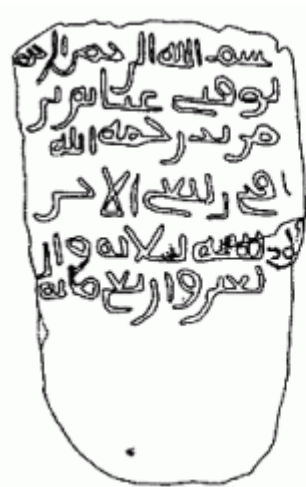 بسم الله الرحمن الرحيم
توفي بن
رحمه الله
في ربيع الاخر
سنه ثلاثه وار
بعين واربع مائه